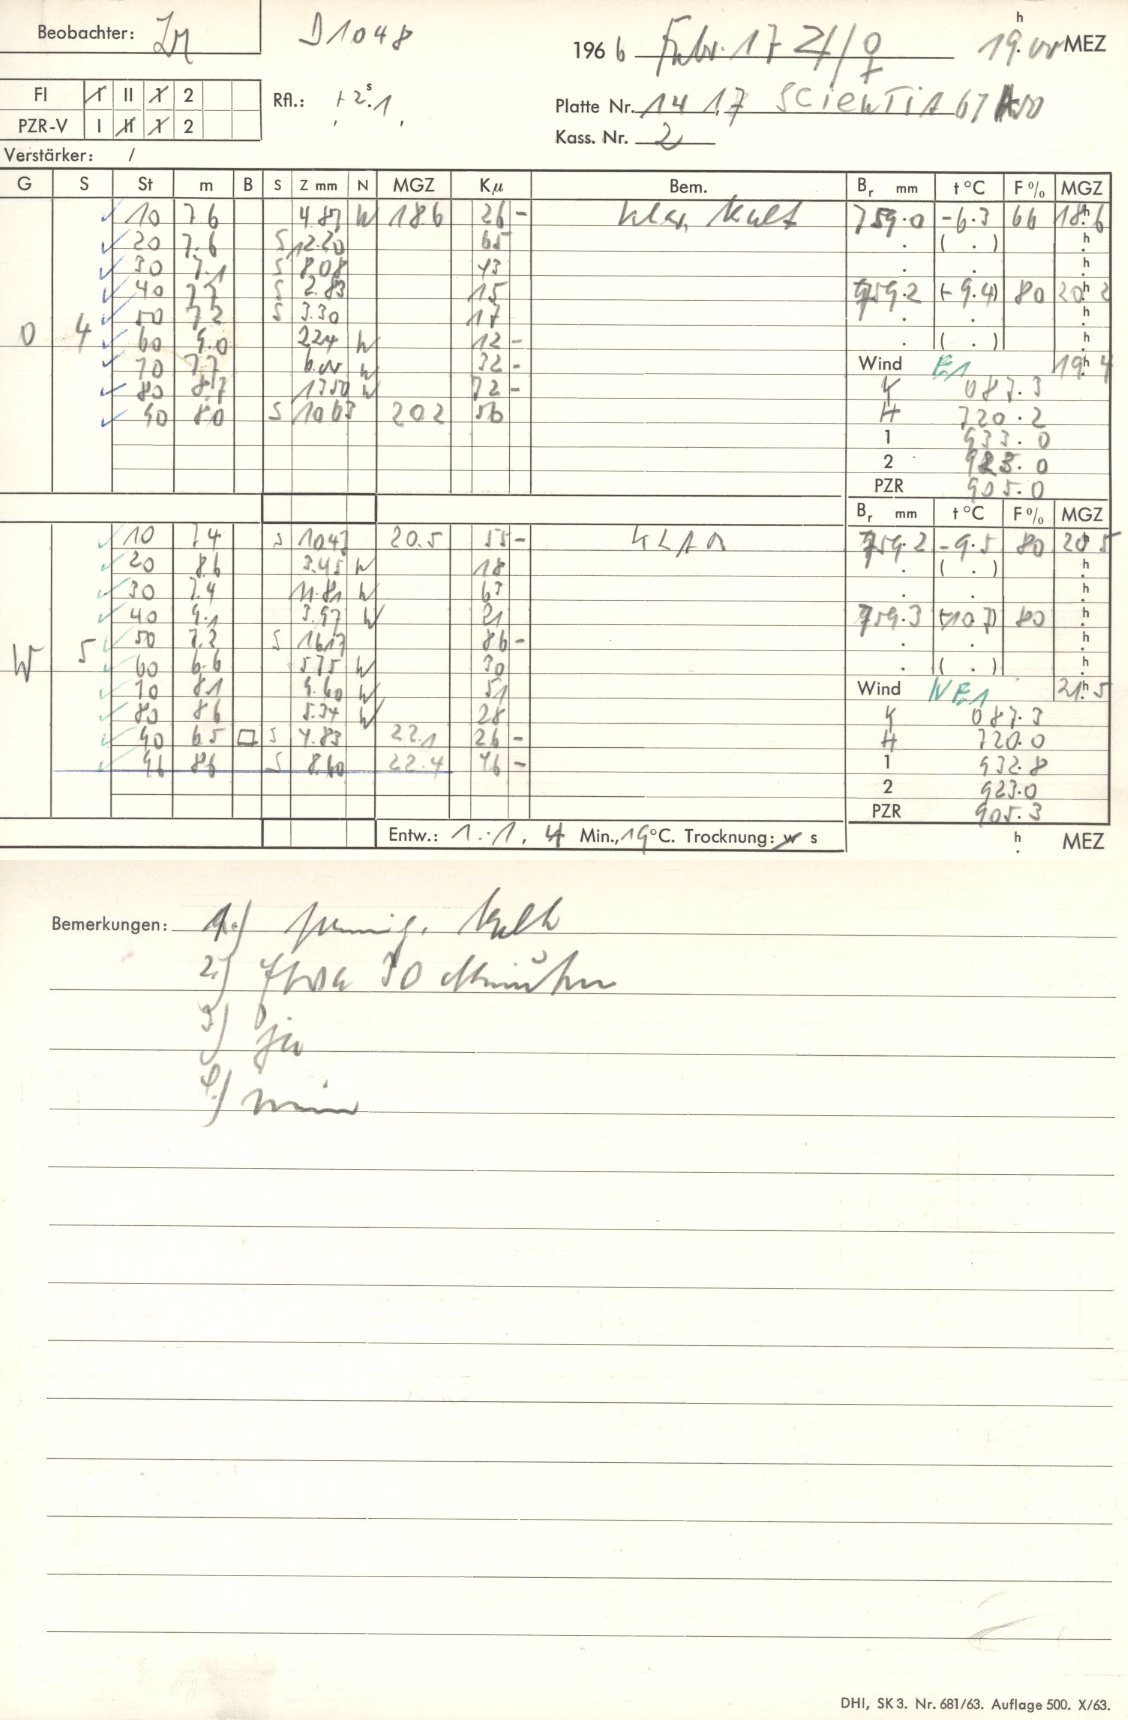 Beobachter: D1048 1966 Febr. 17 ♃/♀ 19.00 h MEZ
FI I II 1 2 Rfl.: +2.1 s Platte Nr. 1417 SCIENTIA 67
PZR-V I II 1 2 Kass. Nr. 2
Verstärker: /
G S St m B S Z mm N MGZ Kμ Bem. Br mm t °C F % MGZ
10 7.6 4.87 W 18.6 26 - klar, kalt 759.0 -6.3 66 18h6
20 7.6 S 12.20 65 . ( . ) h
30 7.1 S 8.08 43 . . h
40 7.7 S 2.83 15 759.2 (-9.4) 80 20h2
50 7.2 S 3.30 17 . . h
O 4 60 9.0 2.24 W 12 - . ( . ) h
70 7.7 6.00 W 32 - Wind E1 19h4
80 8.7 13.50 W 72 - K 087.3
90 8.0 S 10.63 20.2 56 H 720.2
1 933.0
2 923.0
PZR 905.0
Br mm t °C F % MGZ
10 7.4 S 10.43 20.5 55 - KLAR 759.2 -9.5 80 20h5
20 8.6 3.45 W 18 . ( . ) h
30 7.4 11.81 W 63 . . h
40 9.1 3.97 W 21 759.3 (-10.7) 80 h
50 7.2 S 16.17 86 - . . h
W 5 60 6.6 5.75 W 30 . ( . ) h
70 8.1 9.60 W 51 Wind NE1 21h5
80 8.6 5.34 W 28 K 087.3
90 6.5 □ S 4.83 22.1 26 - H 720.0
96 8.6 S 8.60 22.4 46 - 1 932.8
2 923.0
PZR 905.3
Entw.: 1:1, 4 Min., 19 °C. Trocknung: w s h MEZ
Bemerkungen: 1.) Kalt
2.) Etwa 30 Minuten
3) ja
4.) nein
DHI, SK 3. Nr. 681/63. Auflage 500. X/63.